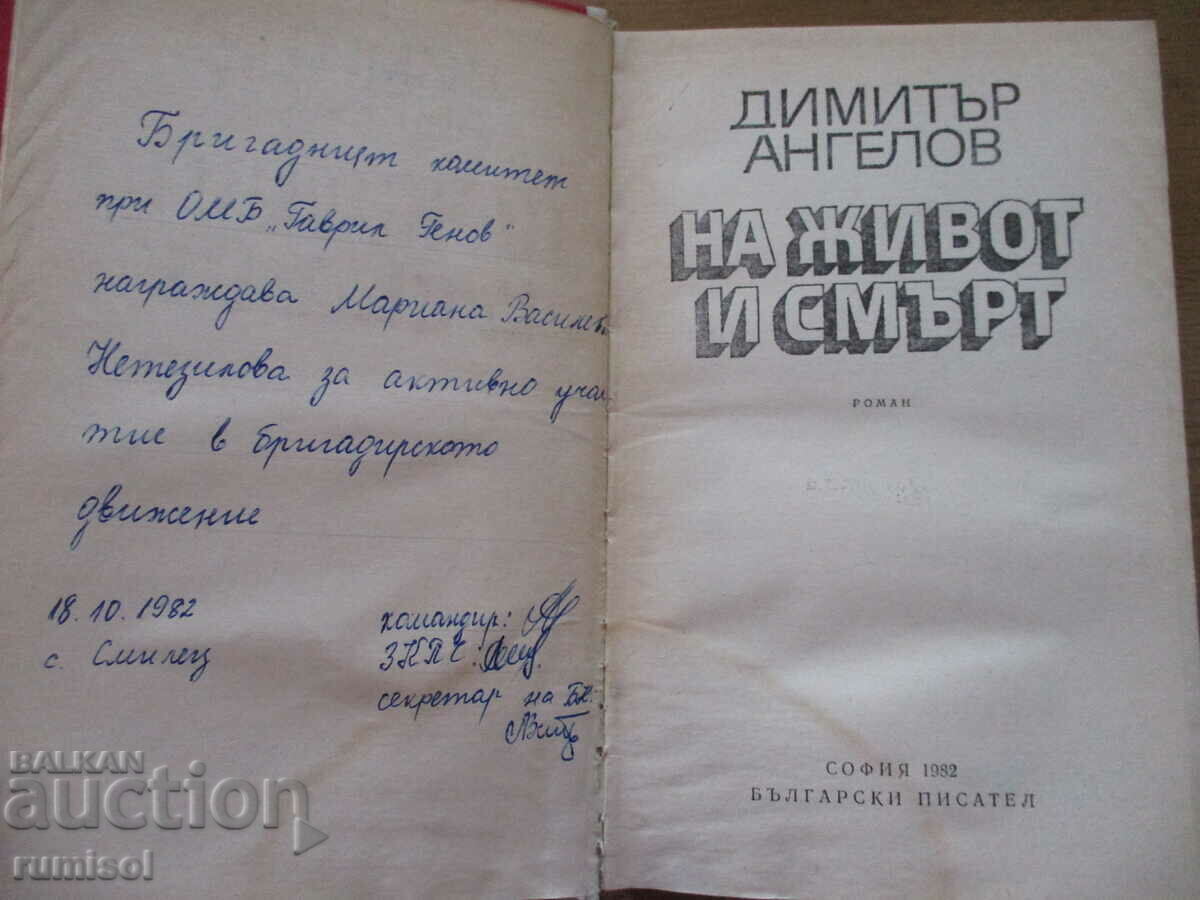 Бригадният комитет
при ОМБ „Гаврил Генов"
награждава Мариана
за активно
тие в бригадирското
движение
18.10.1982
с. Смилец
командир:
ЗКПЧ:
секретар на БК:
ДИМИТЪР
АНГЕЛОВ
НА ЖИВОТ
И СМЪРТ
РОМАН
СОФИЯ 1982
БЪЛГАРСКИ ПИСАТЕЛ
BALKAN
auction
rumisol